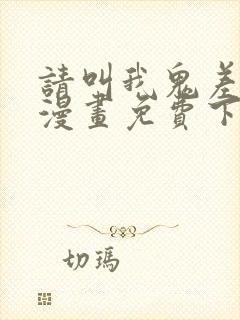 請叫我鬼差
漫畫免費下
切瑪